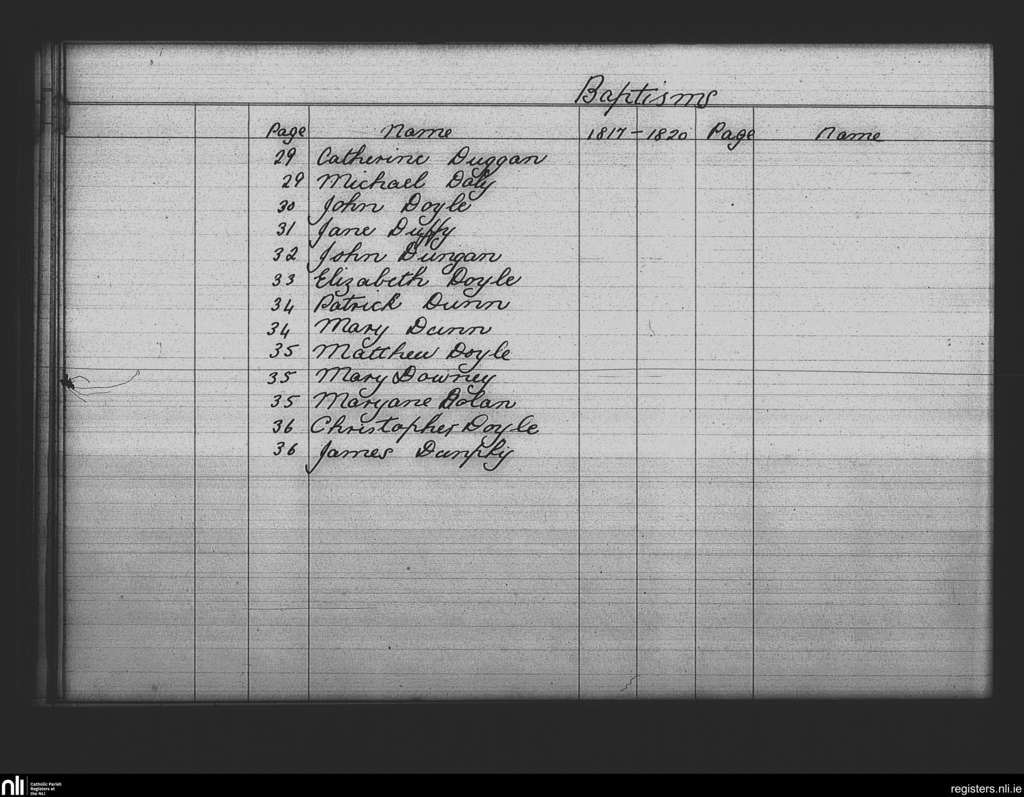 Baptisms
Page Name 1817-1820 Page Name
29 Catherine Duggan
29 Michael Daly
30 John Doyle
31 Jane Duffy
32 John Dungan
33 Elizabeth Doyle
34 Patrick Dunn
34 Mary Dunn
35 Matthew Doyle
35 Mary Downey
35 Maryane Dolan
36 Christopher Doyle
36 James Dunphy
nli Catholic Parish
Registers at
the NLI
registers.nli.ie